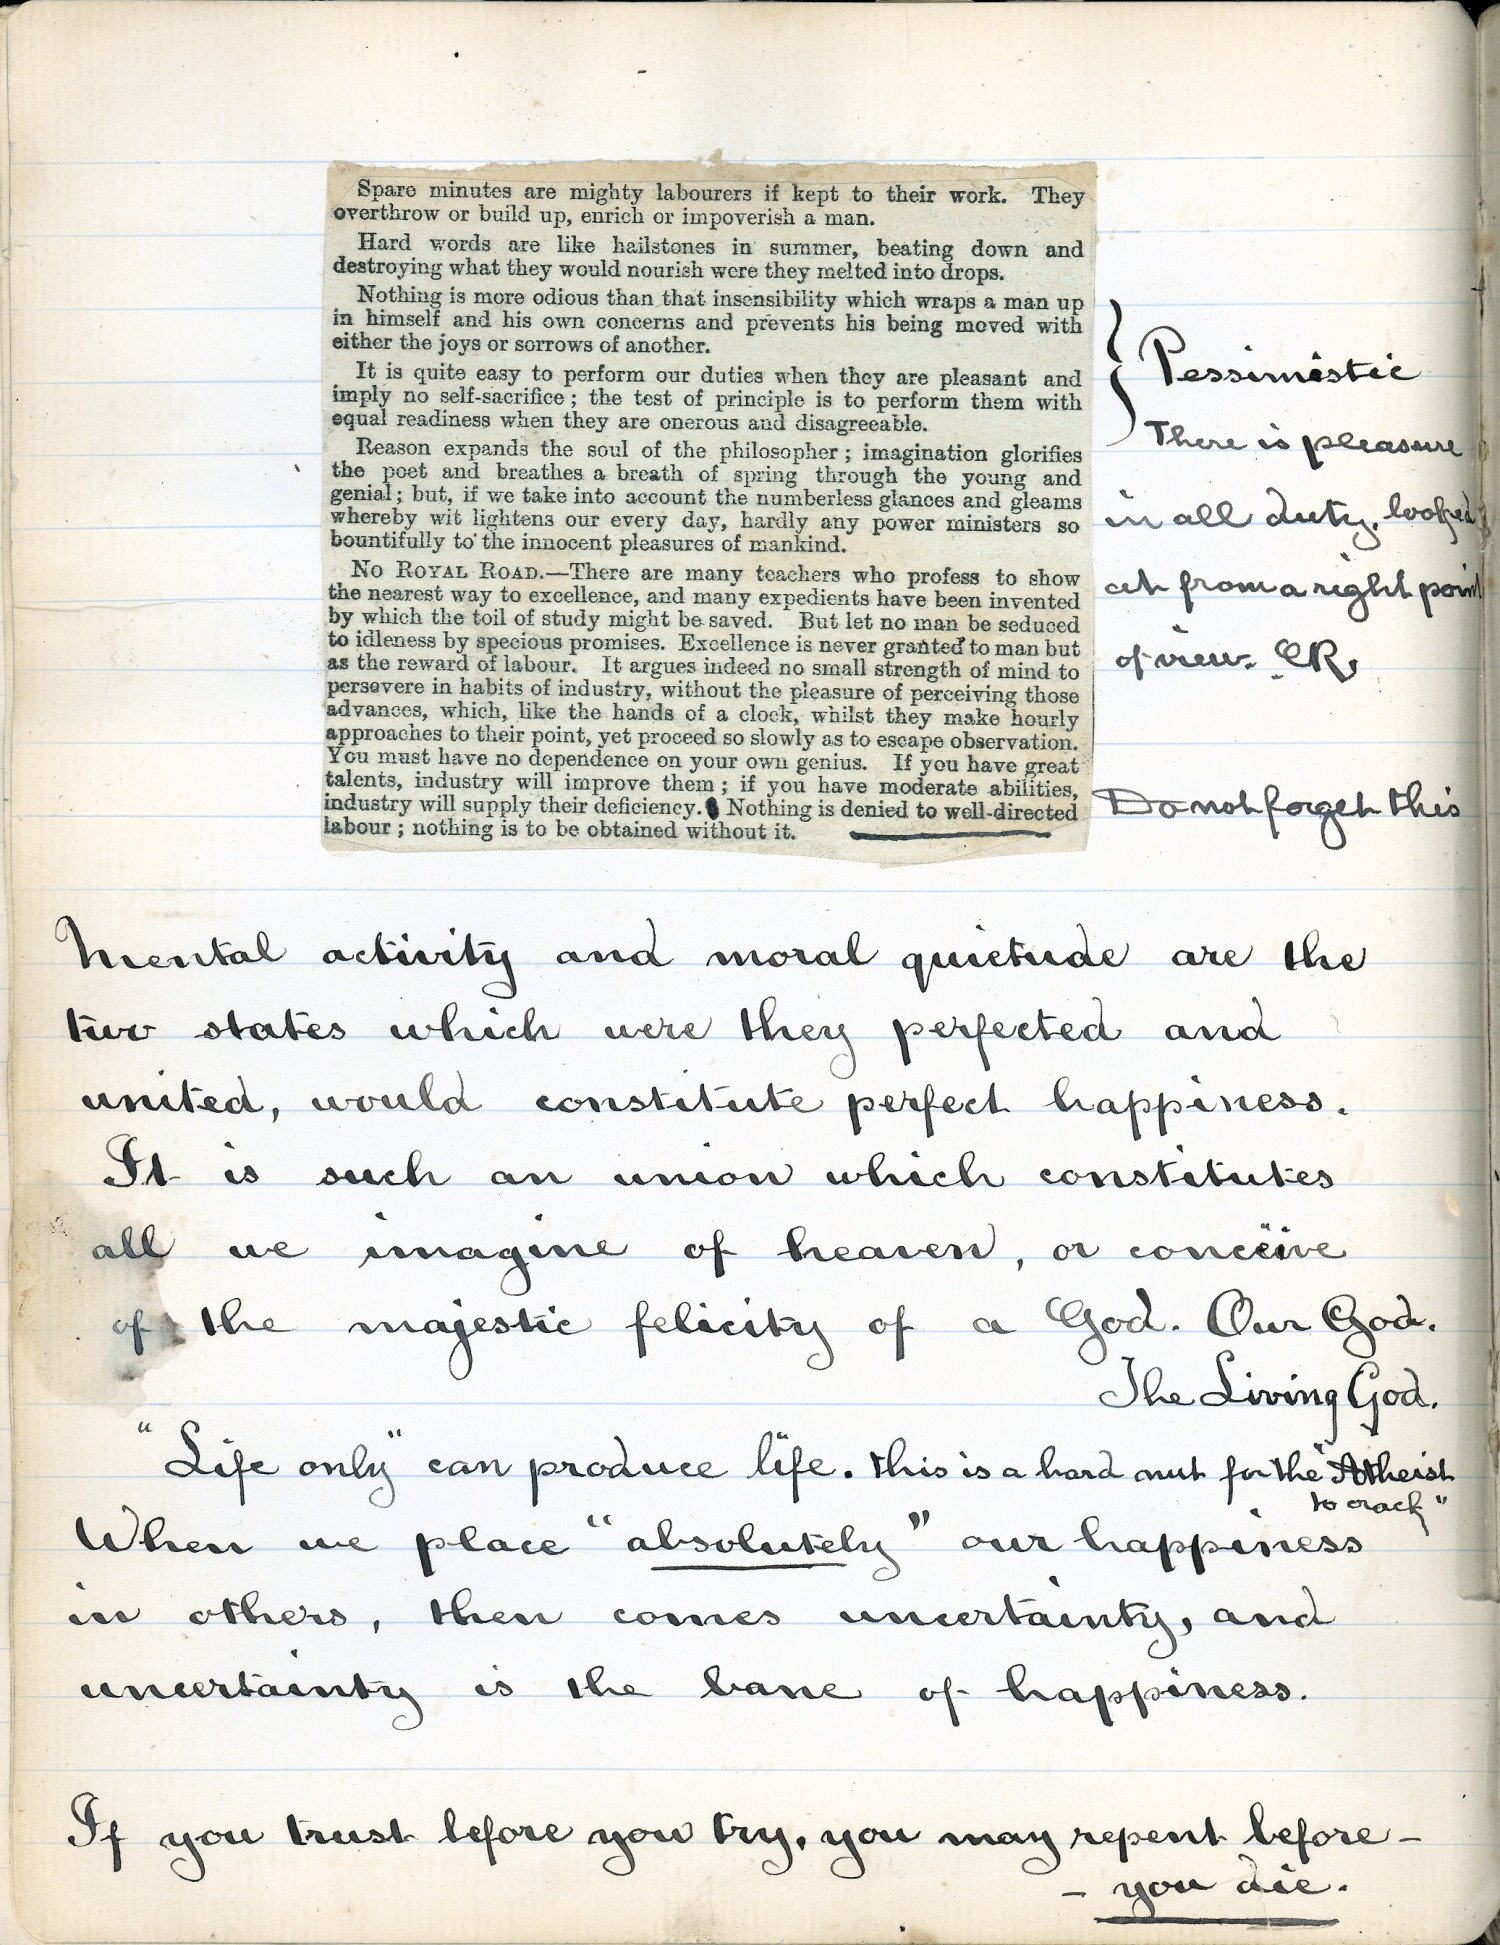 Spare minutes are mighty labourers if kept to their work. They
overthrow or build up, enrich or impoverish a man.
Hard words are like hailstones in summer, beating down and
destroying what they would nourish were they melted into drops.
Nothing is more odious than that insensibility which wraps a man up
in himself and his own concerns and prevents his being moved with
either the joys or sorrows of another.
It is quite easy to perform our duties when they are pleasant and
imply no self-sacrifice; the test of principle is to perform them with
equal readiness when they are onerous and disagreeable.
Reason expands the soul of the philosopher; imagination glorifies
the poet and breathes a breath of spring through the young and
genial; but, if we take into account the numberless glances and gleams
whereby wit lightens our every day, hardly any power ministers so
bountifully to the innocent pleasures of mankind.
NO ROYAL ROAD.—There are many teachers who profess to show
the nearest way to excellence, and many expedients have been invented
by which the toil of study might be saved. But let no man be seduced
to idleness by specious promises. Excellence is never granted to man but
as the reward of labour. It argues indeed no small strength of mind to
persevere in habits of industry, without the pleasure of perceiving those
advances, which, like the hands of a clock, whilst they make hourly
approaches to their point, yet proceed so slowly as to escape observation.
You must have no dependence on your own genius. If you have great
talents, industry will improve them; if you have moderate abilities,
industry will supply their deficiency. Nothing is denied to well-directed
labour; nothing is to be obtained without it.
Pessimistic
There is pleasure
in all duty, looked
at from a right point
of view. CR.
Do not forget this
Mental activity and moral quietude are the
two states which were they perfected and
united, would constitute perfect happiness.
It is such an union which constitutes
all we imagine of heaven, or conceive
of the majestic felicity of a God. Our God.
The Living God.
"Life only" can produce life. this is a hard nut for the "Atheist
to crack"
When we place "absolutely" our happiness
in others, then comes uncertainty, and
uncertainty is the bane of happiness.
If you trust before you try, you may repent before -
- you die.